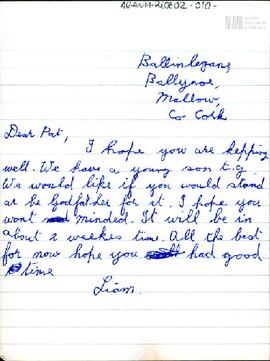 Ballinlegane,
Ballynoe,
Mallow,
Co Cork
Dear Pat,
I hope you are kepping
well. We have a young son t.g.
We would like if you would stand
or be Godfather for it. I hope you
wont minded. It will be in
about 2 weekes time. All the best
for now hope you had good
time
Liam.